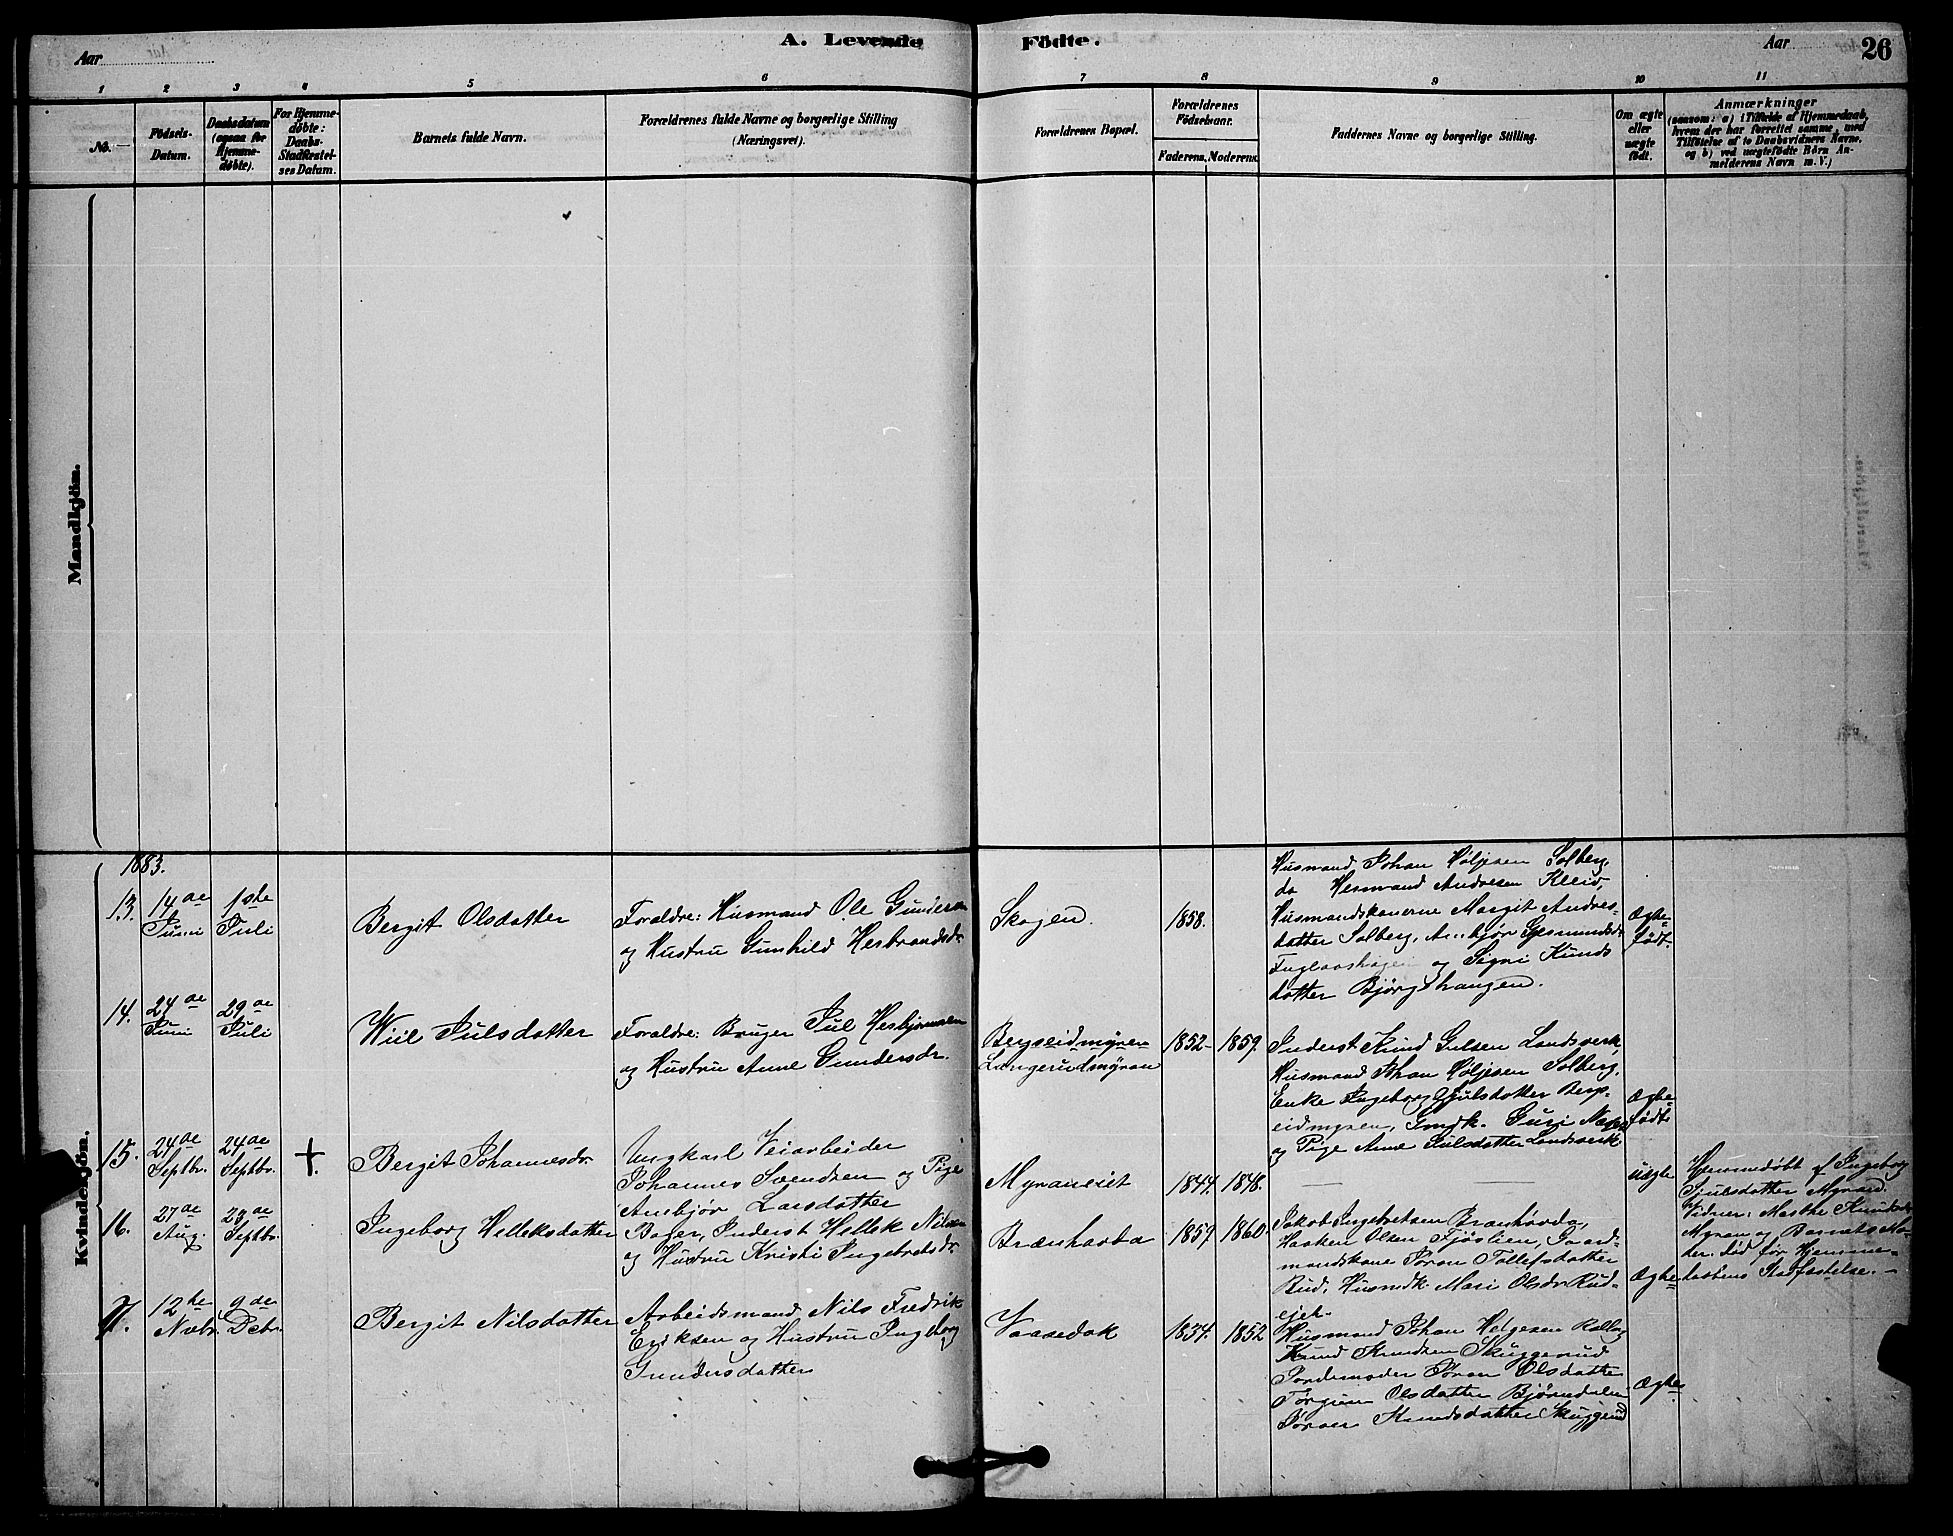 A. Levende Födte.
Aar
Aar
26
1 2 3 4 5 6 7 8 9 10 11
No.
Födsels-
Datum.
Daabsdatum
(ogsaa for
Hjemme-
döbte).
For Hjemme-
döbte:
Daabs-
Stadfæstel-
ses Datum.
Barnets fulde Navn.
Forældrenes fulde Navne og borgerlige Stilling
(Næringsvei).
Forældrenes Bopæl.
Forældrenes
Födselsaar.
Faderens. Moderens.
Faddernes Navne og borgerlige Stilling.
Om ægte
eller
uægte
födt.
Anmærkninger
(saasom: a) i Tilfælde af Hjemmedaab,
hvem der har forrettet samme, med
Tilföielse af to Daabsvidners Navne,
og b) ved uægtefödte Börn An-
melderens Navn m. V.)
Mandkjön.
Kvindekjön.
1883.
13.
14de
Juni
1ste
Juli
Bergit Olsdatter
Foraldre: Husmand Ole Gundersen
og Hustru Gunhild Herbrandsdr.
Skogen.
1858.
Husmand Johan Høljesen Solberg,
do Hermand Andresen Kleiv,
Husmandskonerne Margit Andres-
datter Solberg,
og Sigri Knuds
datter Bjørgshaugen.
Ægte-
født.
14.
24de
Juni
29de
Juli
Wiel Julsdatter
Foraldre: Bruger Jul Herbjørnsen
og Hustru Anne Gundersdr.
Bergseidmyren
Langerudmyran
1852-
1859.
Inderst Knud Gulsen Landsverk,
Husmand Johan Høljesen Solberg.
Enke Ingeborg Gjulsdatter Berg-
seidmyren, Gmdk. Guri
og Pige Anne Julsdatter Landsverk
Ægte-
født
15.
24de
Septbr.
24de
Septbr.
+
Bergit Johannesdr.
Ungkarl Veiarbeider
Johannes Svendsen og Pige
Anbjør Larsdatter
Myraneiet
1844.
1848.
uægte
Hjemmedøbt af Ingeborg
Gjulsdatter Myran.
Vidner: Marthe Knudsdr
Myran og Barnets Mo-
der. Død før Hjemme-
daabens Stadfæstelse. -
16.
27de
Aug.
23de
Septbr.
Ingeborg Helleksdatter
Bager, Inderst Hellek Nilsen
og Hustru Kristi Ingebretsdr.
Brænhovda
1859
1860.
Jakob Ingebretsen Brænhovda,
Haaken Olsen Fjøslien, Gaard-
mandskone Jøran Tollefsdatter
Rud, Husmdk. Mari Olsdr. Rud-
ejet.
Ægte-
17.
12te
Novbr.
9de
Debr.
Bergit Nilsdatter
Arbeidsmand Nils Fredrik
Eriksen og Hustru Ingeborg
Gundersdatter
Vaasedok
1834.
1852
Husmand Johan Helgesen Rollag
Knud Knudsen Skuggerud
Jordemoder Jøran Olsdatte
Torgun Olsdatter Bjørndalen
Jøran Knudsdatter Skuggerud
Ægte